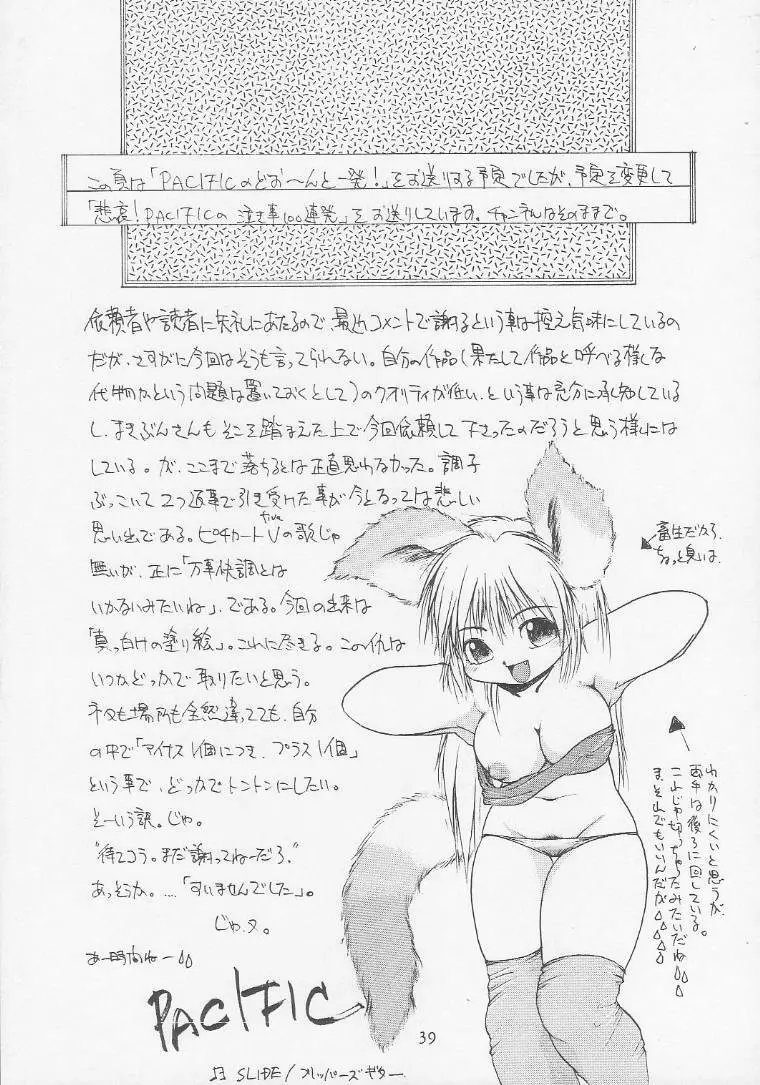 この頁は「PACIFICのどお〜んと一発!」をお送りする予定でしたが、予定を変更して
「悲哀!PACIFICの泣き事100連発」をお送りしています。チャンネルはそのままで。
依頼者や読者に失礼にあたるので、最近コメントで謝るという事は控え気味にしているの
だが、さすがに今回はそうも言ってられない。自分の作品(果たして作品と呼べる様な
代物かという問題は置いておくとして)のクオリティが低い、という事は充分に承知している
し、まきぶんさんもそこを踏まえた上で今回依頼して下さったのだろうと思う様には
している。が、ここまで落ちるとは正直思わなかった。調子
ぶっこいて2つ返事で引き受けた事が今となっては悲しい
思い出である。ピチカートVの歌じゃ
five
無いが、正に「万事快調とは
いかないみたいね」、である。今回の出来は
「真っ白けの塗り絵」。これに尽きる。この仇は
いつかどっかで取りたいと思う。
ネタも場所も全然違ってても、自分
の中で「マイナス1個につき、プラス1個」
という事で、どっかでトントンにしたい。
そーいう訳。じゃ。
"待てコラ。まだ謝ってねーだろ"
あっそうか。…「すいませんでした」。
じゃ、ヌ。
あー時間ねー
PACIFIC
畜生だから
ちょっと臭いよ。
わかりにくいと思うが、
両手は後ろに回している。
これじゃ切っちゃったみたいだね
ま、それでもいいんだが
39
SLIDE/フリッパーズギター